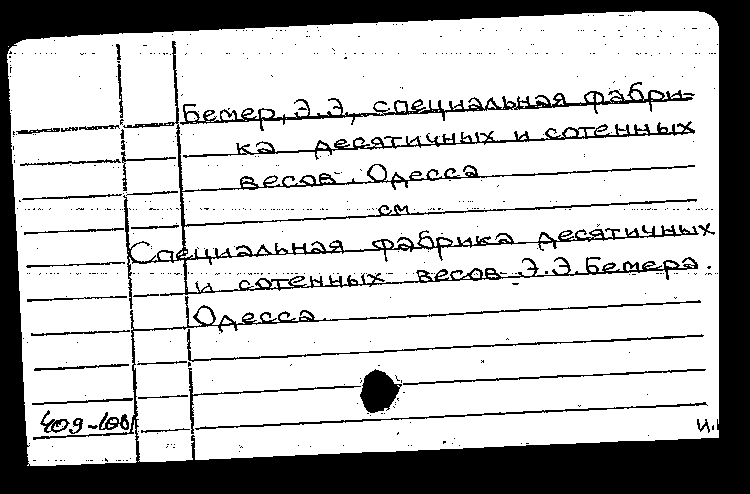 Бемер, Э.Э., специальная фабри-
ка десятичных и сотенных
весов. Одесса
см
Специальная фабрика десятичных
и сотенных весов Э.Э. Бемера.
Одесса.